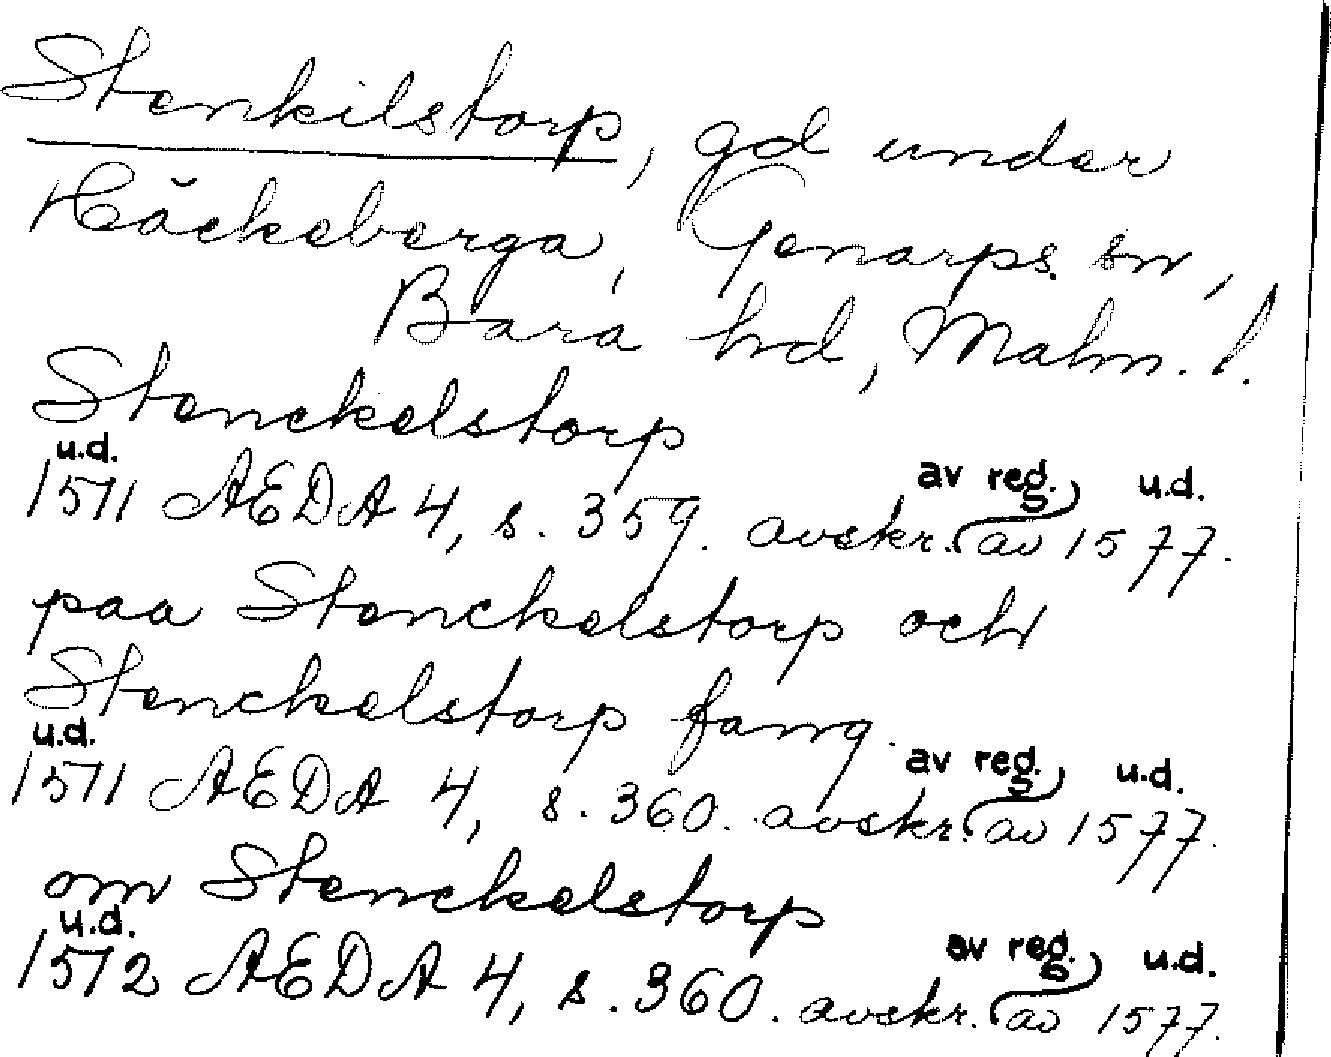 Stenkilstorp, gd under
Häckeberga, Genarps sn,
Bara hd, Malm. l.
Stenckelstorp
u.d. av reg. u.d.
1571 AEDA 4, s. 359. avskr. av 1577.
paa Stenckelstorp och
Stenckelstorp fang.
u.d. av reg. u.d.
1571 AEDA 4, s. 360. avskr. av 1577.
om Stenckelstorp
u.d. av reg. u.d.
1572 AEDA 4, s. 360. avskr. av 1577.